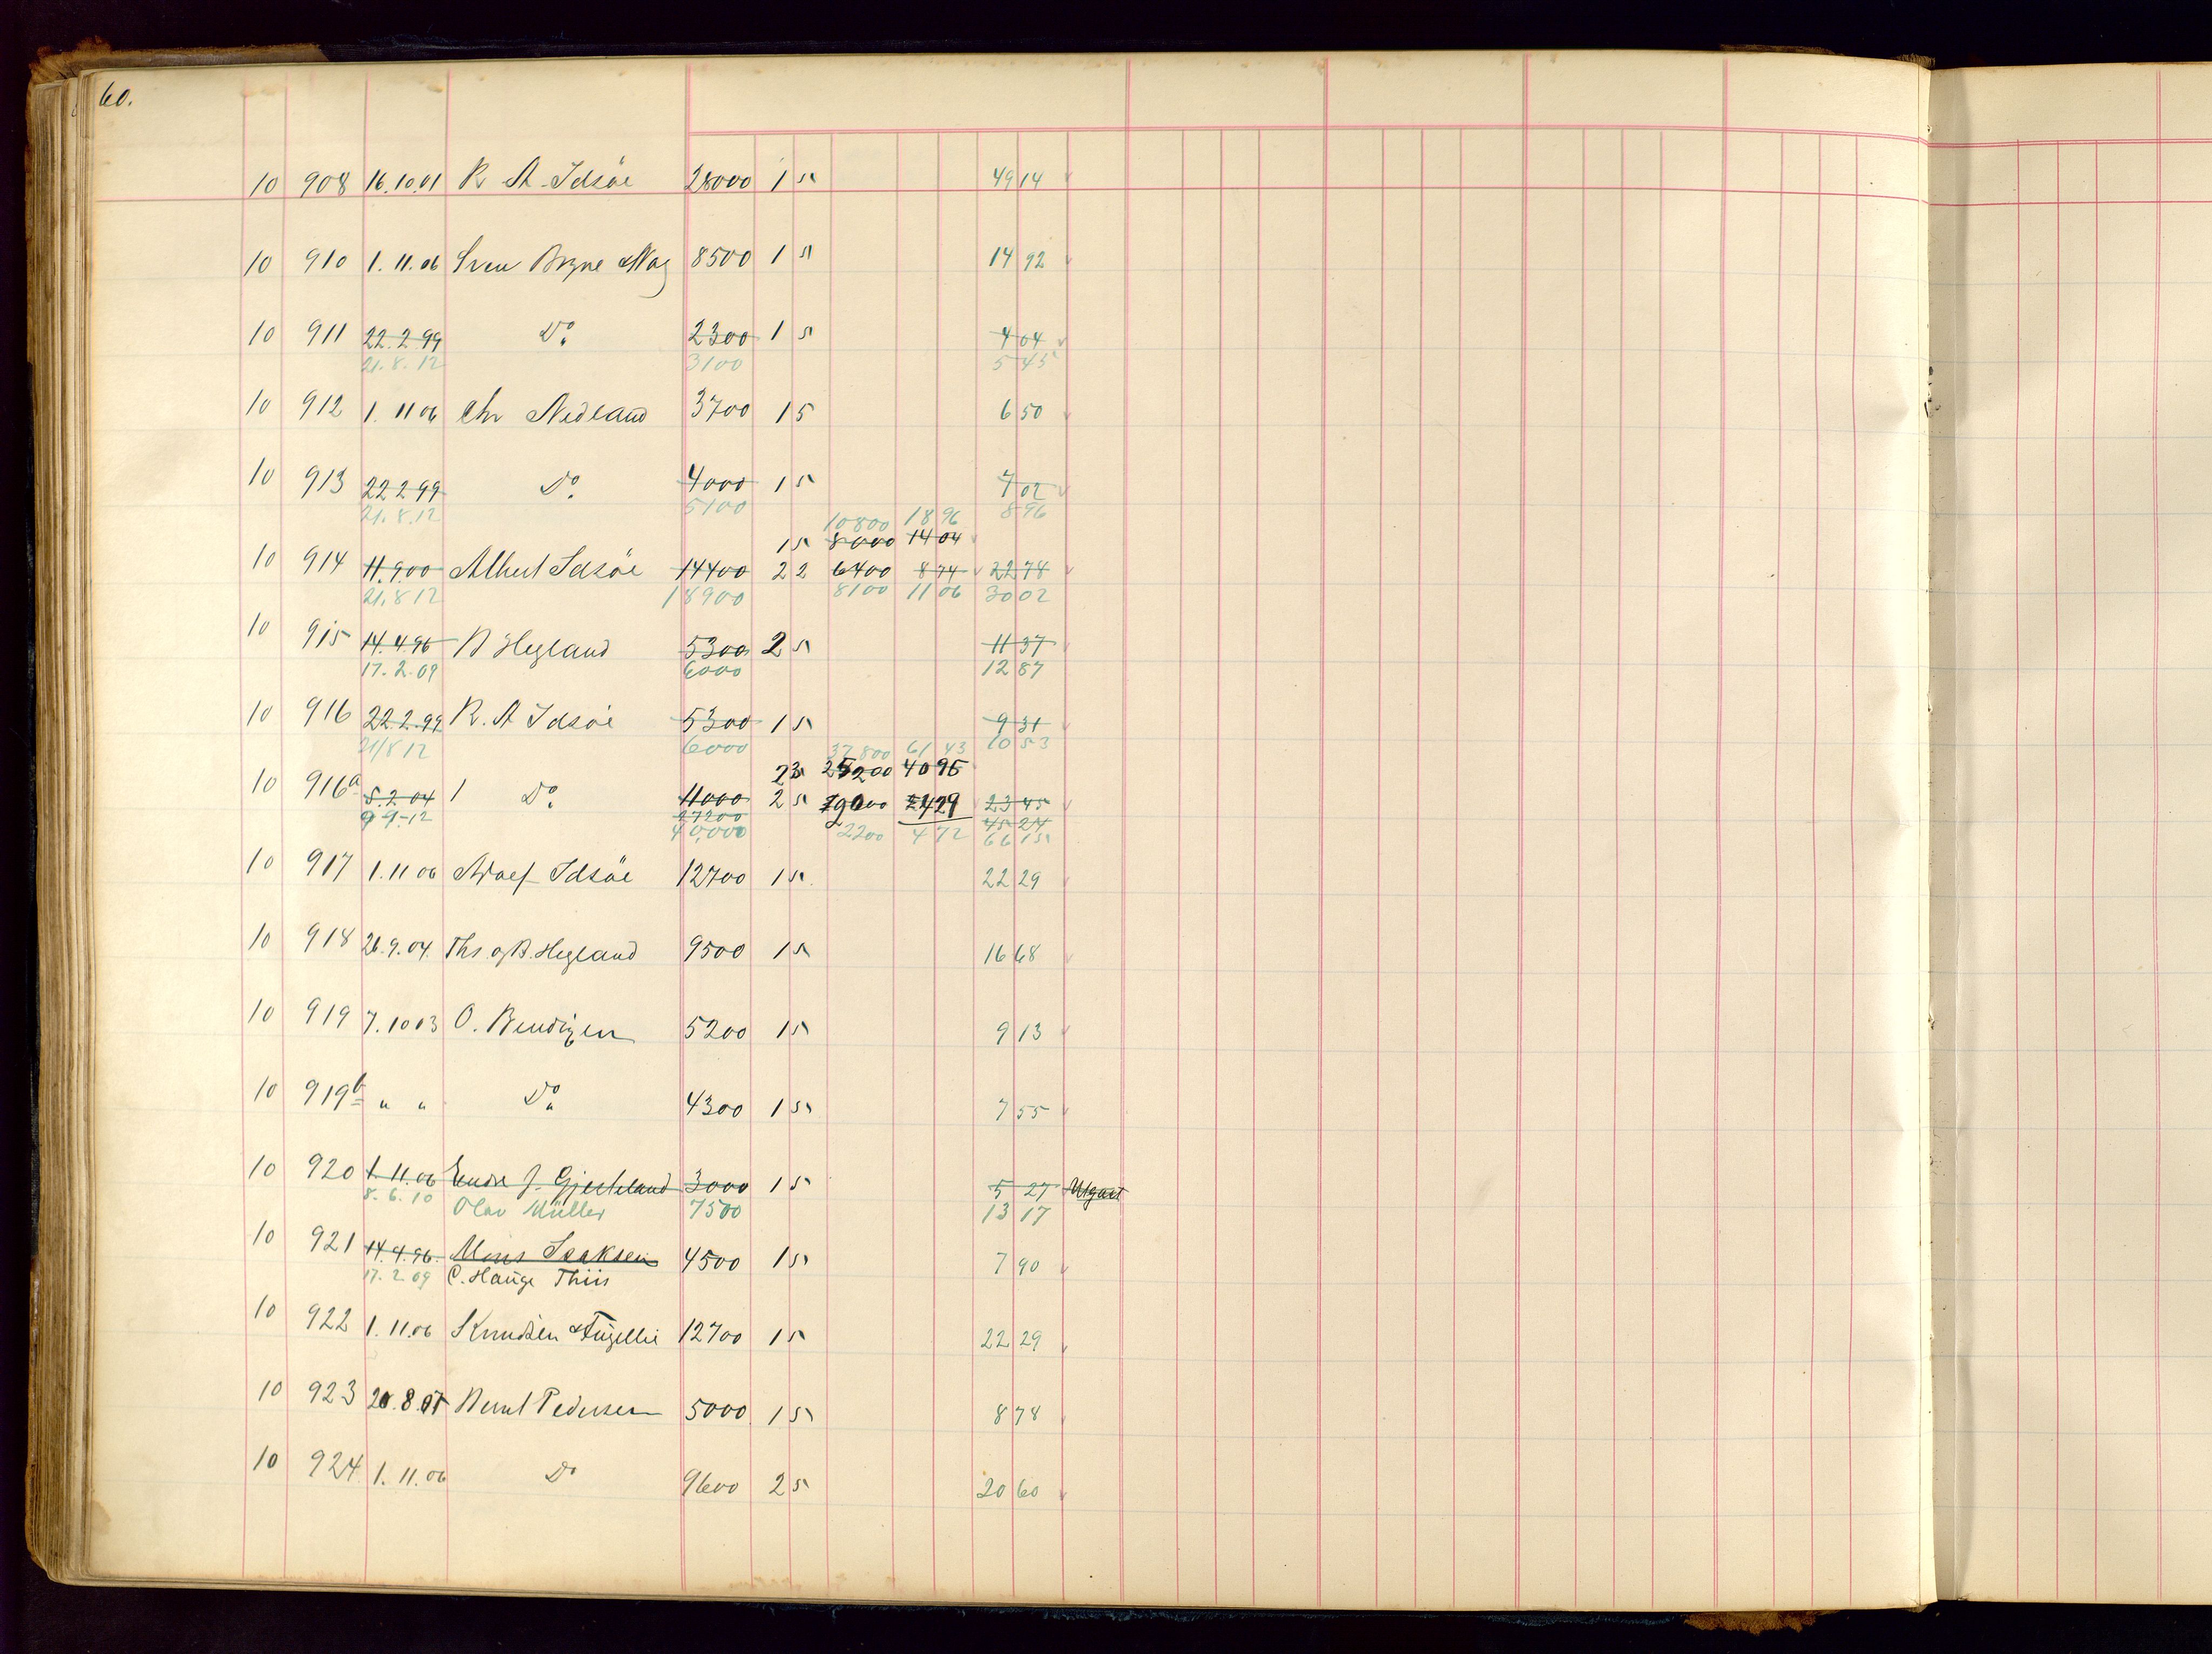 60.
10 908 16.10.01 R A Idsöe 28000 1 5 49 14
10 910 1.11.06 Sven Bryne & Mag 8500 1 5 14 92
10 911 22.2.99 Do. 2300 1 5 4 04
21.8.12 3100 5 45
10 912 1.11 06 Chr Nedland 3700 1 5 6 50
10 913 22 2 99 Do. 4000 1 5 7 02
21.8.12 5100 8 96
10800 18 96
1 5 8000 14 04
10 914 11.9.00 Albert Idsöe 14400 2 2 6400 8 74 22 78
21.8 12 18900 8100 11 06 30 02
10 915 14.4.96 B Hegland 5300 2 5 11 37
17.2.09 6000 12 87
10 916 22.2.99 R. A Idsöe 5300 1 5 9 31
21/8 12 6000 10 53
37800 61 43
2 3 25200 40 95
10 916a 5.2 04 1 Do. 11000 2 5 23 45
9 9.-12 27200 45 24
40,000 2200 4 72 66 15
10 917 1.11 06 Adolf Idsöe 12700 1 5 22 29
10 918 26.9.04. Ths. og B. Hegland 9500 1 5 16 68
10 919 7.10 03 O. Bendixen 5200 1 5 9 13
10 919b " " Do " 4300 1 5 7 55
10 920 1.11.06 Endre J. Gjesteland 3000 1 5 5 27 Utgaat
8.6.10 Olav Müller 7500 13 17
10 921 14.4.96. Mons Isaksen 4500 1 5 7 90
17.2 09 C. Hauge Thiis
10 922 1.11.06 Knudsen & Fügellie 12700 1 5 22 29
10 923 20.8.07 Bernt Pedersen 5000 1 5 8 78
10 924 1.11.06 Do 9600 2 5 20 60